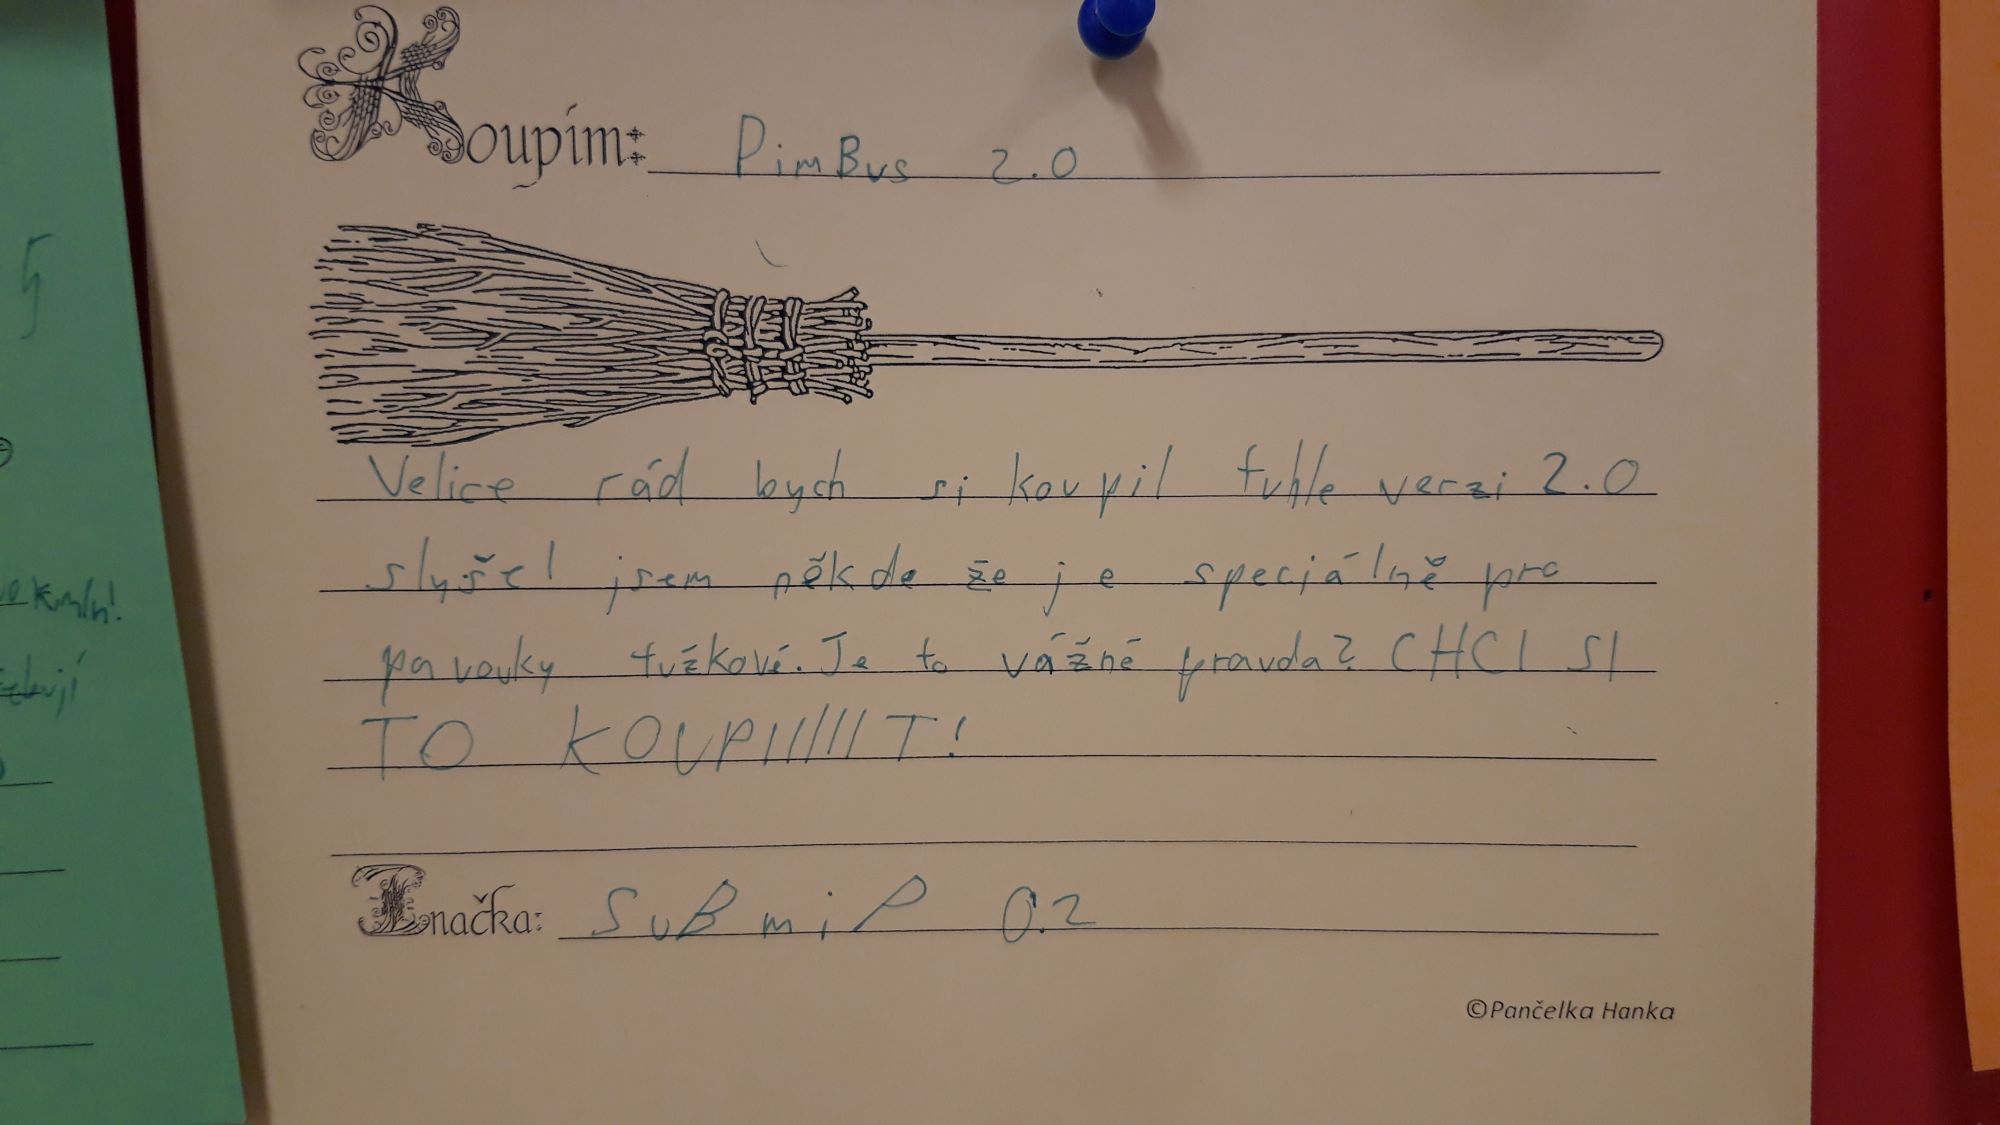 Koupím: PimBus 2.0
Velice rád bych si koupil tuhle verzi 2.0
slyšel jsem někde že je speciálně pro
pavouky tužkové. Je to vážně pravda? CHCI SI
TO KOUPIIIIIIT!
Značka: SuBmiP 0.2
©Pančelka Hanka
km/h!